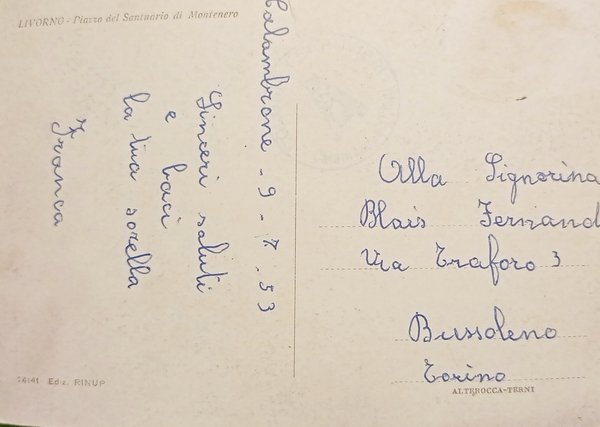 LIVORNO - Piazza del Santuario di Montenero
Calambrone - 9 - 7 . 53
Sinceri saluti
e baci
la tua sorella
Franca
Alla Signorina
Blais Fernand
Via Traforo 3
Bussoleno
Torino
Ediz. RINUP
ALTEROCCA-TERNI